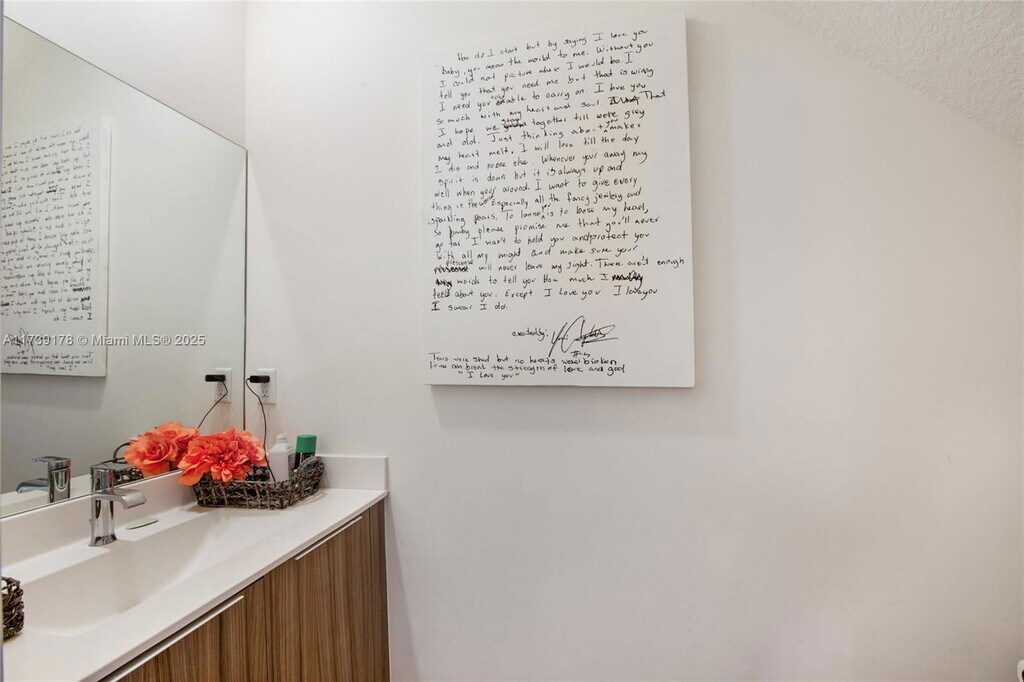 How do I start but by saying I love you
baby, you mean the world to me. Without you
I could not picture where I would be. I
tell you that you need me but that is wrong
I need you to be able to carry on I love you
so much with my heart and soul. That
I hope we stay together till we're grey
and old. Just thinking about you makes
my heart melt. I will love till the day
I die and noone else. Whenever your away my
spirit is down but it is always up and
well when your around. I want to give every
thing in the world Especially all the fancy jewlery and
sparkling pears. To loose you is to loose my heart,
So baby please promise me that you'll never
go far I want to hold you and protect you
with all my might and make sure your
presense will never leave my sight. There are'nt enough
words to tell you How much I
feel about you. Except I Love you I love you
I swear I do.
created by:
Tears were shed but no hearts were broken
can break the strength of love and good
"I Love you"
A11739178 © Miami MLS® 2025